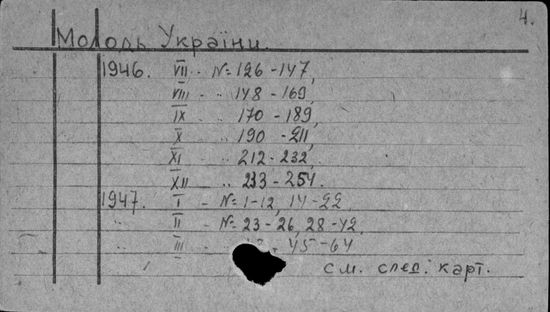 4.
Молодь України.
1946. VII - №126-147,
VIII - „ 148-169,
IX - „ 170-189,
X - „ 190-211,
XI - „ 212-232,
XII - „ 233-254.
1947. I - №1-12, 14-22
„ II - №23-26, 28-42.
„ III - 45-64
см. след. карт.